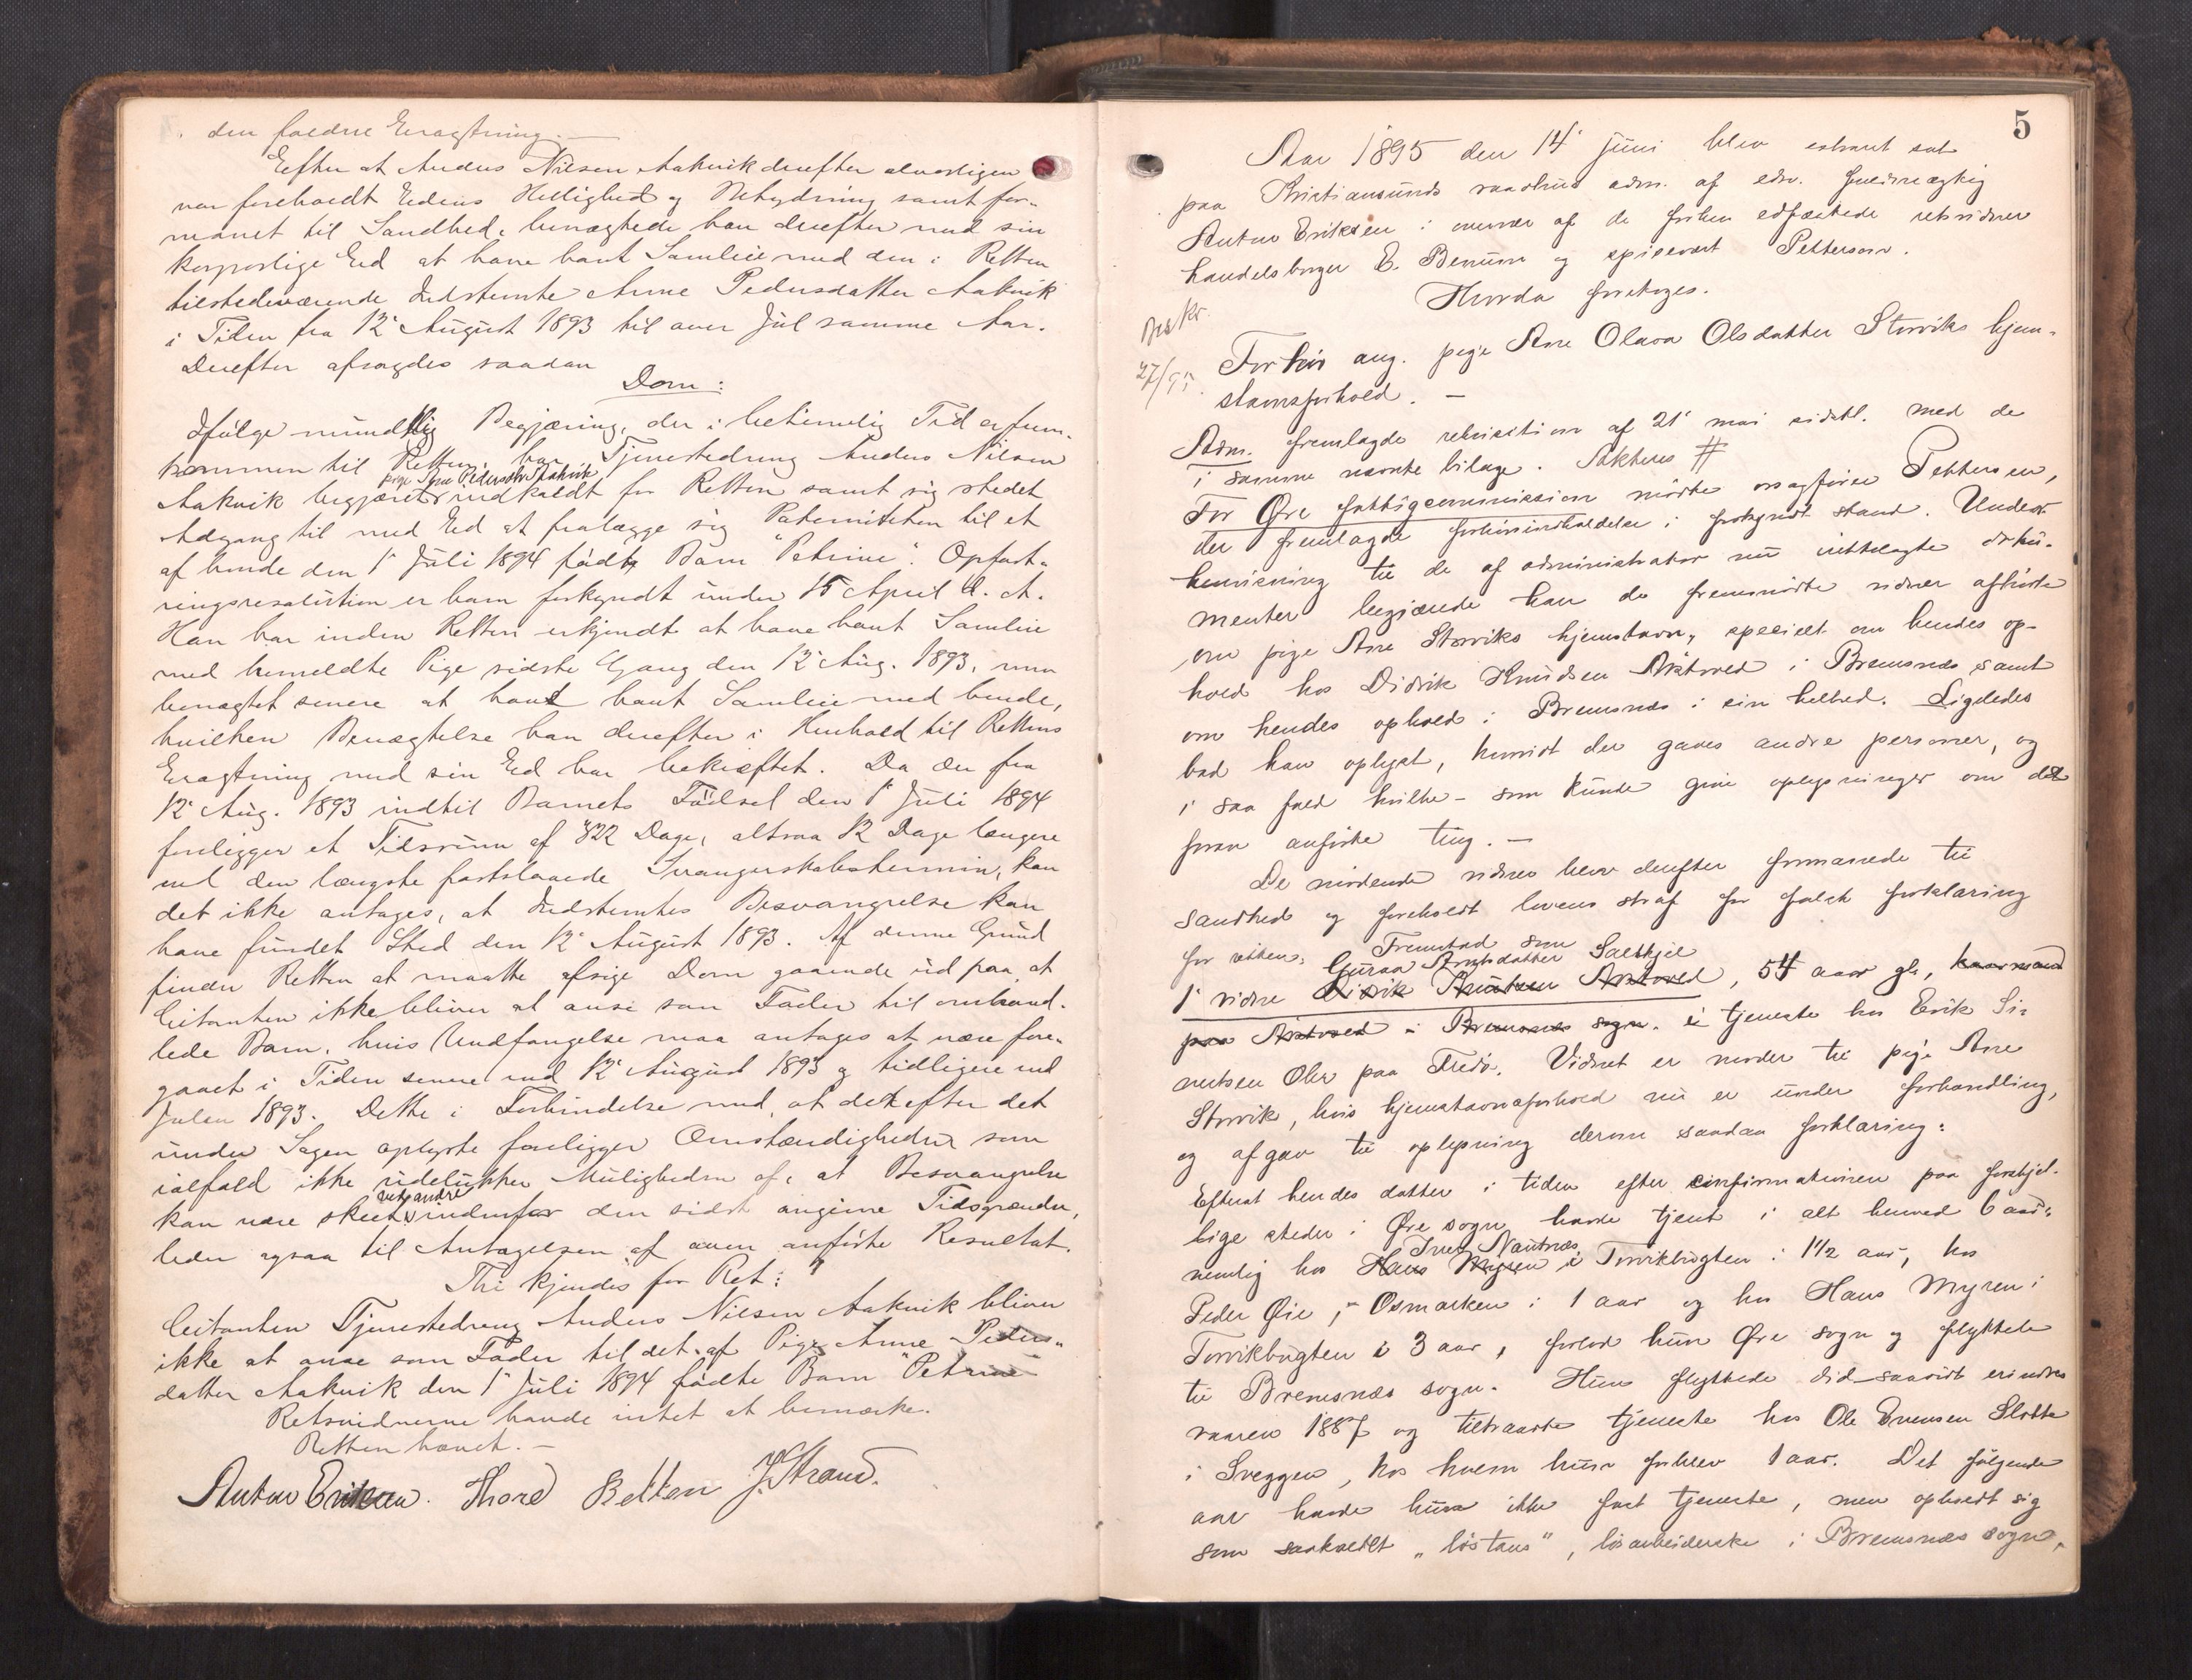 den faldne Eragtning. —
Eefter at Anders Nilsen Aakvik derefter alvorligen
var foreholdt Edens Hellighed og Betydning samt for-
manet til Sandhed, benægtede han derefter med sin
korporlige Ed at have havt Samleie med den i Retten
tilstedeværende Indstemte Anne Pedersdatter Aakvik
i Tiden fra 12' August 1893 til over Jul samme Aar.
Derefter afsagdes saadan
Dom:
Ifølge mundtlig Begjæring, der i betimelig Tid er frem-
kommen til Retten, har Tjenestedreng Anders Nilsen
pige Ane Pedersdtr Aakvik
Aakvik begjæret indkaldt for Retten samt sig stedet
Adgang til med Ed at fralægge sig Paterniteten til et
af hende den 1' Juli 1894 født Barn "Petrine". Opfost-
ringsresolution er ham forkyndt under 15 April d. A.
Han har inden Retten erkjendt at have havt Samleie
med bemeldte Pige sidste Gang den 12' Aug. 1893, men
benægtet senere at have havt Samleie med hende,
hvilken Benægtelse han derefter i Henhold til Rettens
Eragtning med sin Ed har bekræftet. Da der fra
12' Aug. 1893 indtil Barnets Fødsel den 1' Juli 1894
foreligger et Tidsrum af 322 Dage, altsaa 12 Dage længere
end den længste fastslaaede Svangerskabstermin, kan
det ikke antages, at Indstemtes Besvangrelse kan
have fundet Sted den 12' August 1893. Af denne Grund
finder Retten at maatte afsige Dom gaaende ud paa, at
Citanten ikke bliver at anse som Fader til omhand-
lede Barn, hvis Undfangelse maa antages at være fore-
gaaet i Tiden senere end 12' August 1893 og tidligere end
Julen 1893. Dette i Forbindelse med, at det efter det
under Sagen oplyste foreligger Omstændigheder som
ialfald ikke udelukker Muligheden af, at Besvangrelse
ved andre
kan være skeet indenfor den sidst angivne Tidsgrændse,
leder ogsaa til Antagelsen af oven anførte Resultat.
Thi kjendes for Ret:
Citanten Tjenestedreng Anders Nilsen Aakvik bliver
ikke at anse som Fader til det af Pige Anne Peders-
datter Aakvik den 1' Juli 1894 fødte Barn "Petrine"
Retsvidnerne havde intet at bemærke.
Retten hævet. —
Anton Eriksen. Thore Betten J. Strand.
5
Aar 1895 den 14' juni blev extraret sat
paa Kristiansunds raadhus adm. af edsv. fuldmægtig
Anton Eriksen i overvær af de forhen edfæstede retsvidner
handelsborger E. Benum og spisevært Petterson.
Hvorda foretoges:
27/95.
Forhør ang. pige Ane Olava Olsdatter Storviks hjem-
stavnsforhold. —
Adm. fremlagde rekvisition af 21' mai sidstl. med de
i samme nævnte bilage. Aktens #
For Øre fattigcommission mødte sagfører Pettersen,
der fremlagde forhørsindkaldelse i forkyndt stand. Under
henvisning til de af administrator nu irettelagte doku-
menter begjærede han de fremmødte vidner afhørte
om pige Ane Storviks hjemstavn, specielt om hendes op-
hold hos Didrik Knudsen Arstved i Bremsnes samt
om hendes ophold i Bremsnes i sin helhed. Ligeledes
bad han oplyst, hvorvidt der gaves andre personer, og
i saa fald hvilke – som kunde give oplysninger om det
foran anførte ting. —
De mødende vidner blev derefter formanede til
sandhed og foreholdt lovens straf for falsk forklaring
for retten.
Fremstod som
Guraa Arntsdatter Saltkjel
1' vidne Didrik Knutsen Arstved, 54 aar gl., kaarmand
paa Arstved i Bremsnes sogn. i tjeneste hos Erik Si-
vertsen Ohr paa Fredø. Vidnet er moder til pige Ane
Storvik, hvis hjemstavnsforhold nu er under forhandling,
og afgav til oplysning derom saadan forklaring:
Efterat hendes datter i tiden efter confirmationen paa forskjel-
lige steder i Øre sogn havde tjent i alt henved 6 aar,
Iver Nautnes
nemlig hos Hans Myren i Torvikbugten i 1½ aar, hos
Peder Øie, Osmarken i 1 aar og hos Hans Myren i
Torvikbugten i 3 aar, forlod hun Øre sogn og flyttede
til Bremsnes sogn. Hun flyttede did saavidt erindres
vaaren 1887 og tiltraadte tjeneste hos Ole Evensen Slotte
i Sveggen, hos hvem hun forblev 1 aar. Det følgende
aar havde hun ikke fast tjeneste, men opholdt sig
som saakaldt „løstaus", løsarbeiderske i Bremsnes sogn,